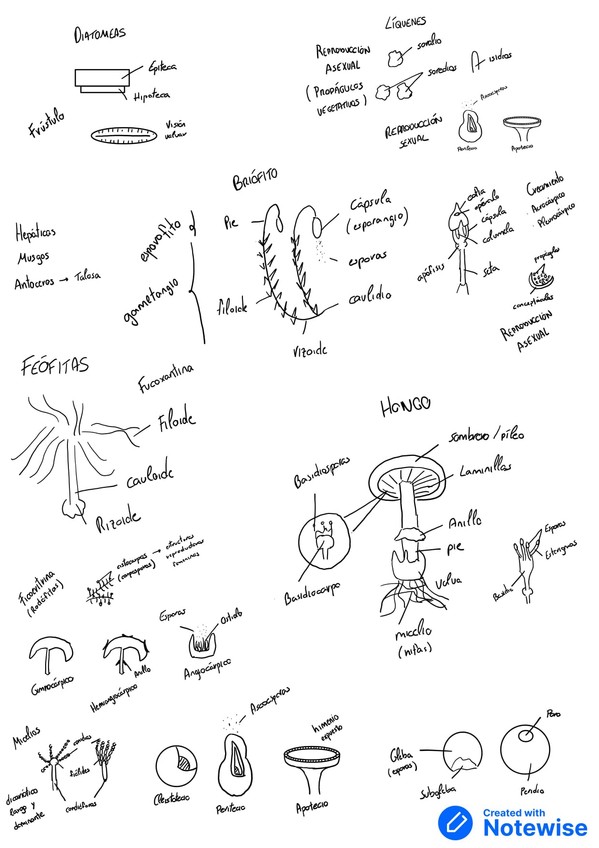 DIATOMEAS
Epiteca
Hipoteca
Frústulo
Visión
valvar
LÍQUENES
REPRODUCCIÓN
ASEXUAL
(PROPÁGULOS
VEGETATIVOS)
soralio
soredios
isidios
REPRODUCCIÓN
SEXUAL
Ascosporas
Peritecio
Apotecio
BRIÓFITO
Hepáticas
Musgos
Antoceros → Talosa
esporofito
gametangio
Pie
Cápsula
(esporangio)
esporas
filoide
caulidio
rizoide
cofia
opérculo
cápsula
columela
apófisis
seta
Crecimiento
Acrocárpico
Pleurocárpico
propágulos
conceptáculos
REPRODUCCIÓN
ASEXUAL
FEÓFITAS
Fucoxantina
Filoide
cauloide
Rizoide
HONGO
sombrero / píleo
Laminillas
Basidiosporas
Anillo
pie
volva
Basidiocarpo
micelio
(hifas)
Esporas
Esterigmas
Basidio
Ficoeritrina
(Rodófitas)
cistocarpos → estructuras
(carposporas) reproductoras
femeninas
Esporas
ostiolo
Gimnocárpico
Hemiangiocárpico
Anillo
Angiocárpico
Micelios
conidios
fiálides
dicariótico
largo y
dominante
conidióforos
Cleistotecio
Ascosporas
Peritecio
himenio
expuesto
Apotecio
Gleba
(esporas)
Subgleba
Poro
Peridio
Created with
Notewise